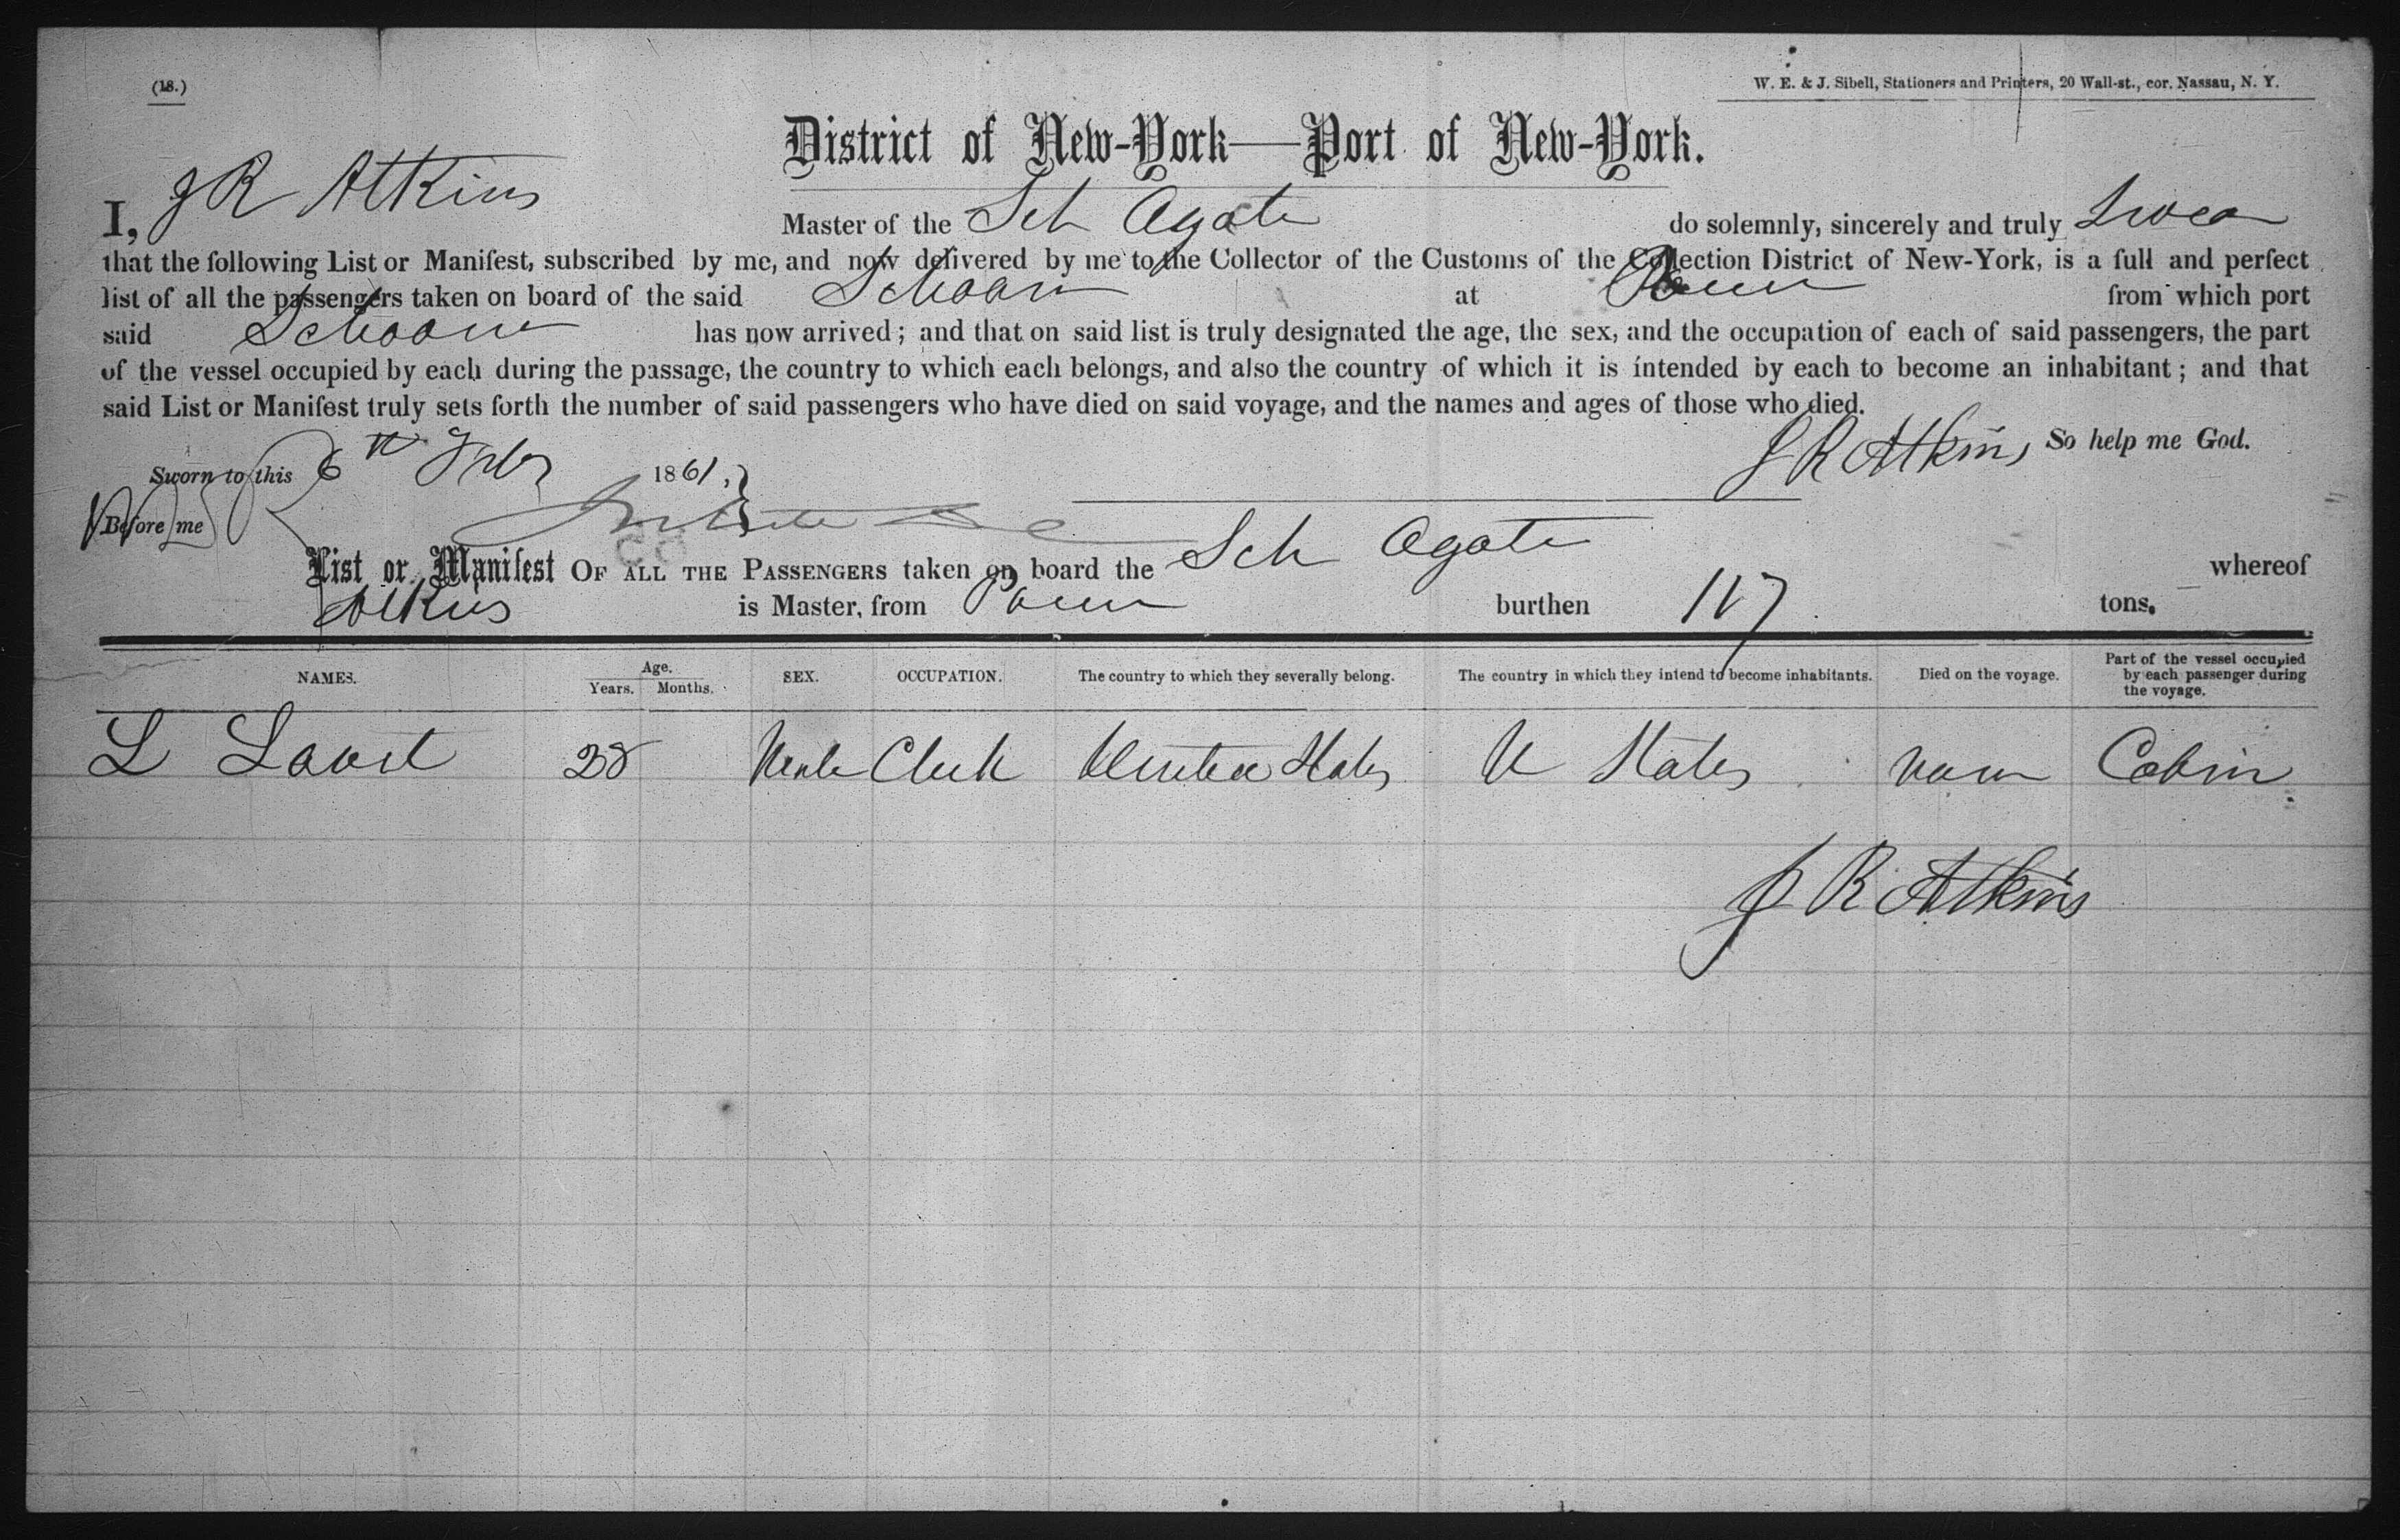 (18.)
W. E. & J. Sibell, Stationers and Printers, 20 Wall-st., cor. Nassau, N. Y.
District of New-York—Port of New-York.
I, J R Atkins Master of the Sch Agate do solemnly, sincerely and truly Swear
that the following List or Manifest, subscribed by me, and now delivered by me to the Collector of the Customs of the Collection District of New-York, is a full and perfect
list of all the passengers taken on board of the said Schoon at Ponce from which port
said Schoon has now arrived; and that on said list is truly designated the age, the sex, and the occupation of each of said passengers, the part
of the vessel occupied by each during the passage, the country to which each belongs, and also the country of which it is intended by each to become an inhabitant; and that
said List or Manifest truly sets forth the number of said passengers who have died on said voyage, and the names and ages of those who died.
J R Atkins So help me God.
Sworn to this 6th Feby 1861,
Before me
List or Manifest OF ALL THE PASSENGERS taken on board the Sch Agate whereof
Atkins is Master, from Ponce burthen 117 tons.
NAMES. Age. Years. Months. SEX. OCCUPATION. The country to which they severally belong. The country in which they intend to become inhabitants. Died on the voyage. Part of the vessel occupied by each passenger during the voyage.
L 28 Male Clerk United States U States none Cabin
J R Atkins